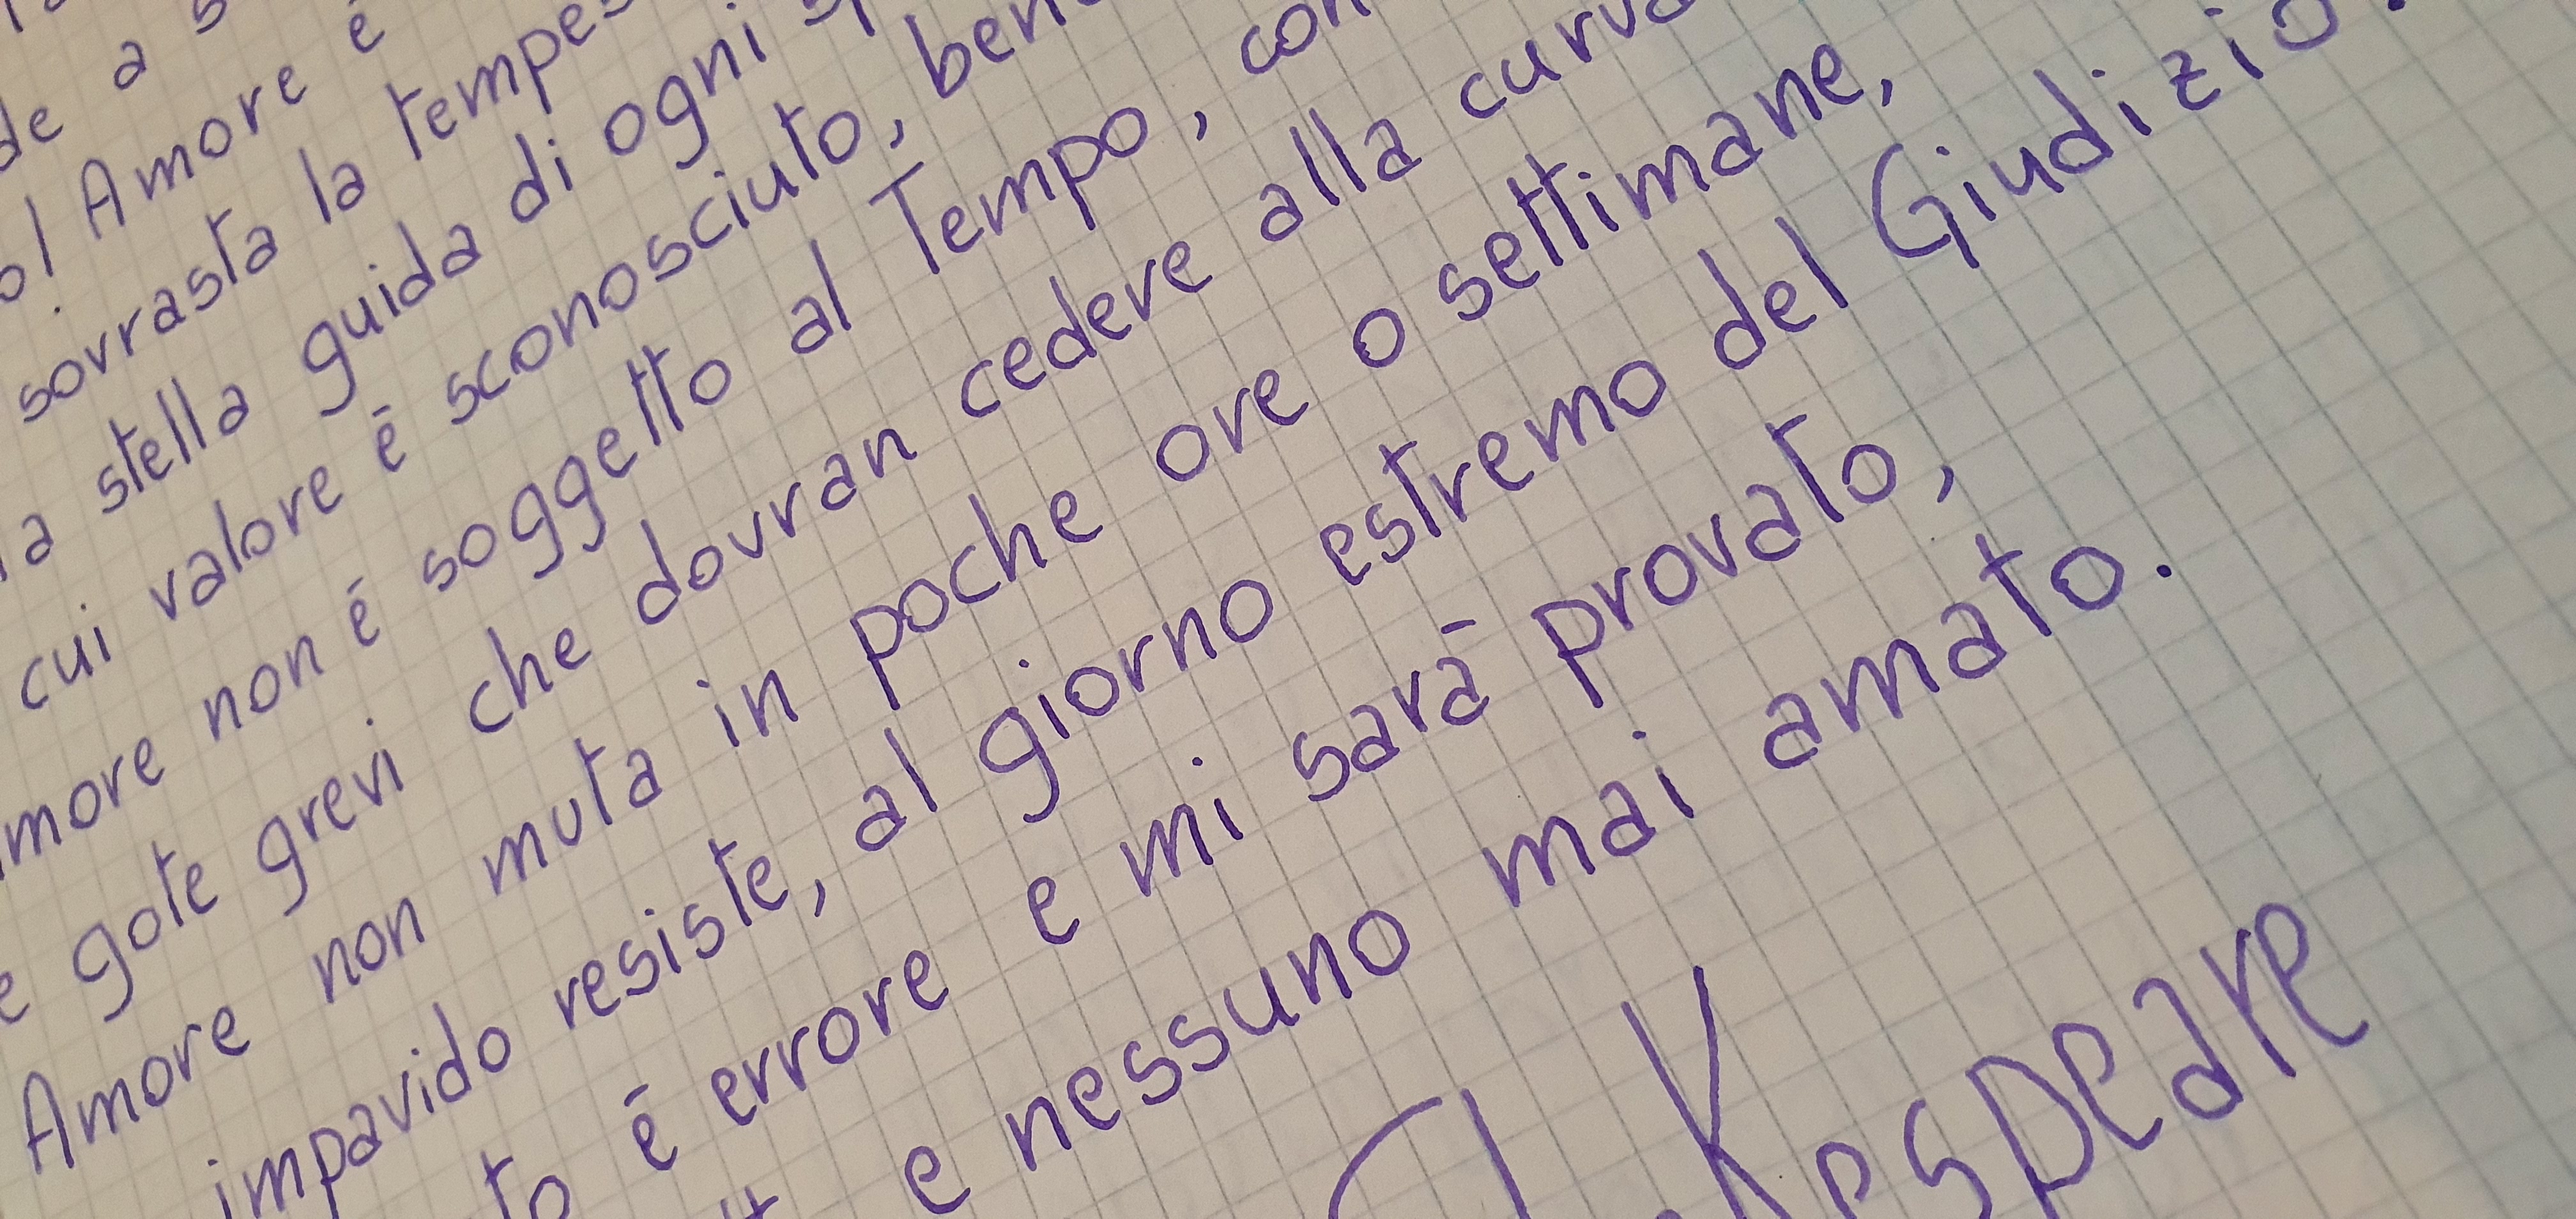 de a s
o! Amore è
sovrasta la tempes
la stella guida di ogni
cui valore è sconosciuto, ben
more non è soggetto al Tempo, con
e gote grevi che dovran cedere alla curva
Amore non muta in poche ore o settimane,
impavido resiste, al giorno estremo del Giudizio.
to è errore e mi sarà provato,
e nessuno mai amato.
Shakespeare